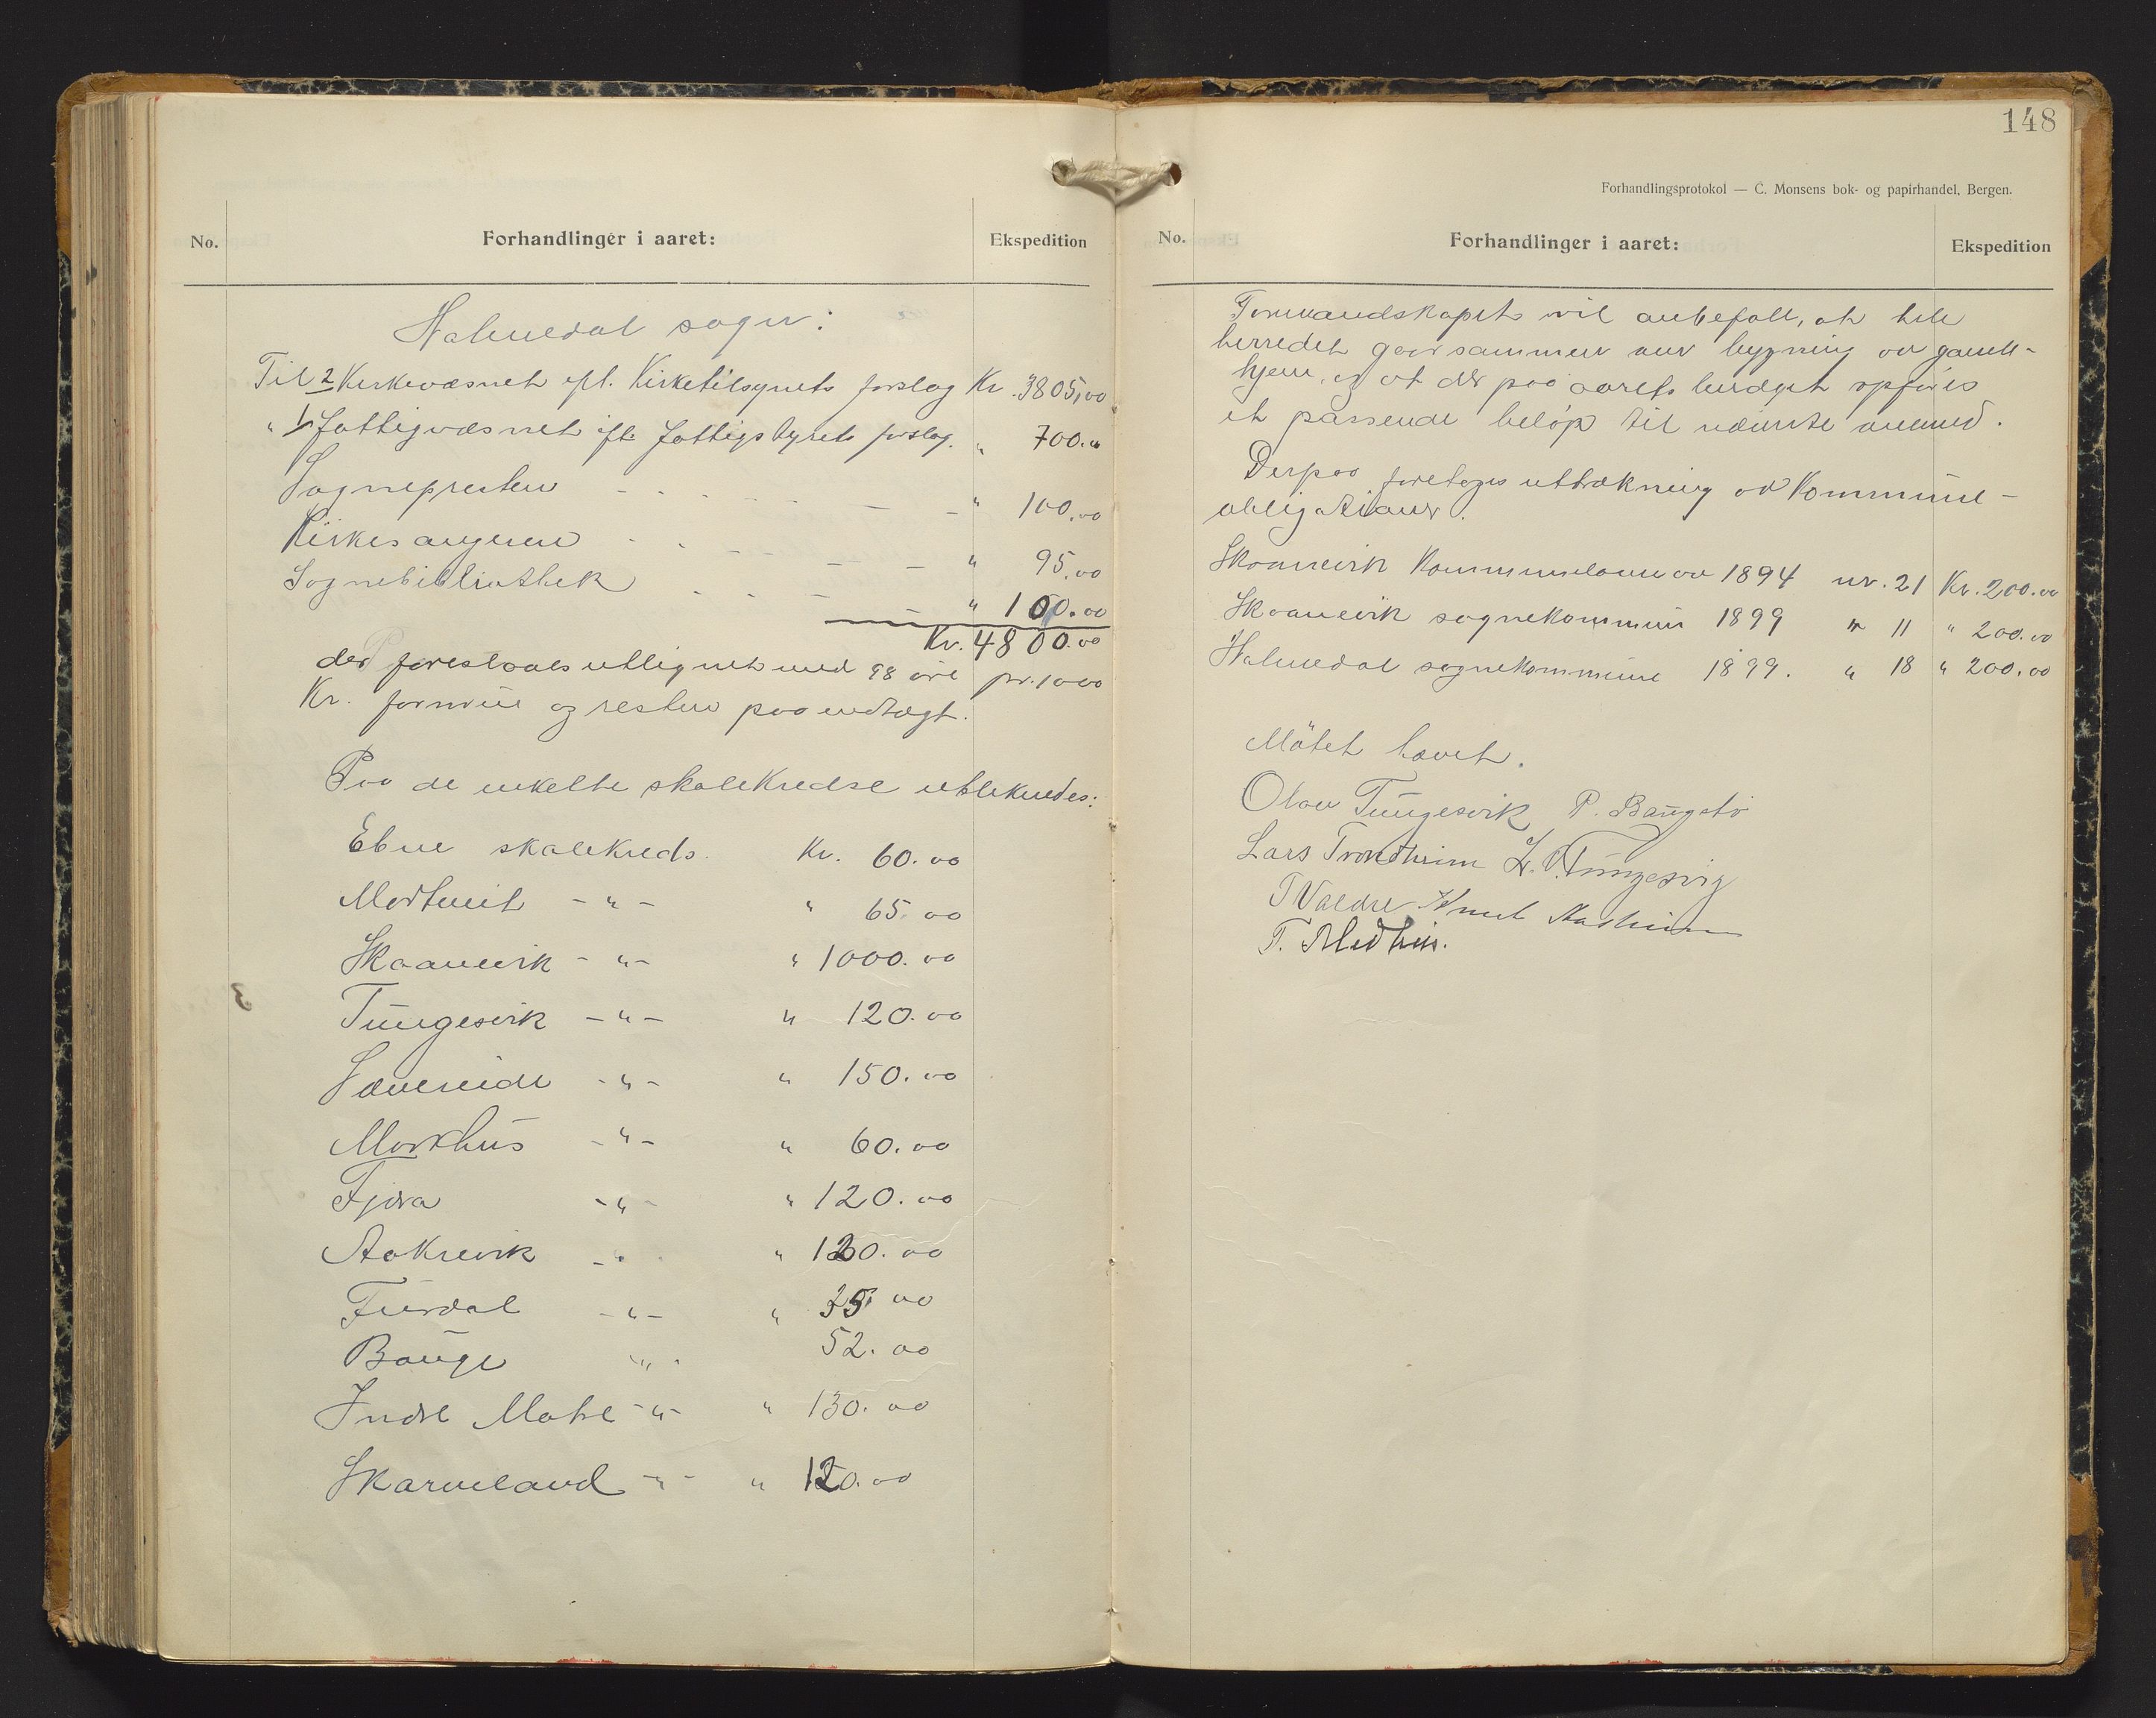 No.
Forhandlinger i aaret:
Ekspedition
Halnedal sogn:
Til 2 Kirkevæsnet eft. Kirketilsynets forslag Kr. 3805,00
" 1 Fattigvæsnet eft. fattigstyrets forslag. " 700.00
Sognepresten - - - " 100.00
Kirkesangeren - - - " 95.00
Sognebibliothek - - - " 100.00
Kr. 4800.00
der foreslaaes utlignet med 98 øre pr. 1000
Kr. formue og resten paa indtægt.
Paa de enkelte skolekredse utliknedes:
Ebne skolekreds. Kr. 60.00
Mortveit - " - " 65.00
Skaanevik - " - " 1000.00
Tungesvik - " - " 120.00
Sævereide - " - " 150.00
Markhus - " - " 60.00
Fjøra - " - " 120.00
Aakrevik - " 120.00
Furdal - " - " 35.00
Bauge " 52.00
Indre Matre - " - " 130.00
Skarveland - " - " 120.00
148
Forhandlingsprotokol — C. Monsens bok- og papirhandel, Bergen.
No.
Forhandlinger i aaret:
Ekspedition
Formandskapet vil anbefale, at hele
herredet gaar sammen om bygning av gamle-
hjem, og at der paa aarets budget opføres
et passende beløp til nævnte øiemed.
Derpaa foretoges uttrækning av Kommune-
obligationer.
Skaanevik Kommunelaan av 1894 nr. 21 Kr. 200.00
Skaanevik sognekommune 1899 " 11 " 200.00
Halnedal sognekommune 1899. " 18 " 200.00
Møtet hævet.
Olav Tungesvik P. Baugstø
Lars Trondheim L. O. Tungesvig
T Valdre Knut Aasheim
T. Medhus.